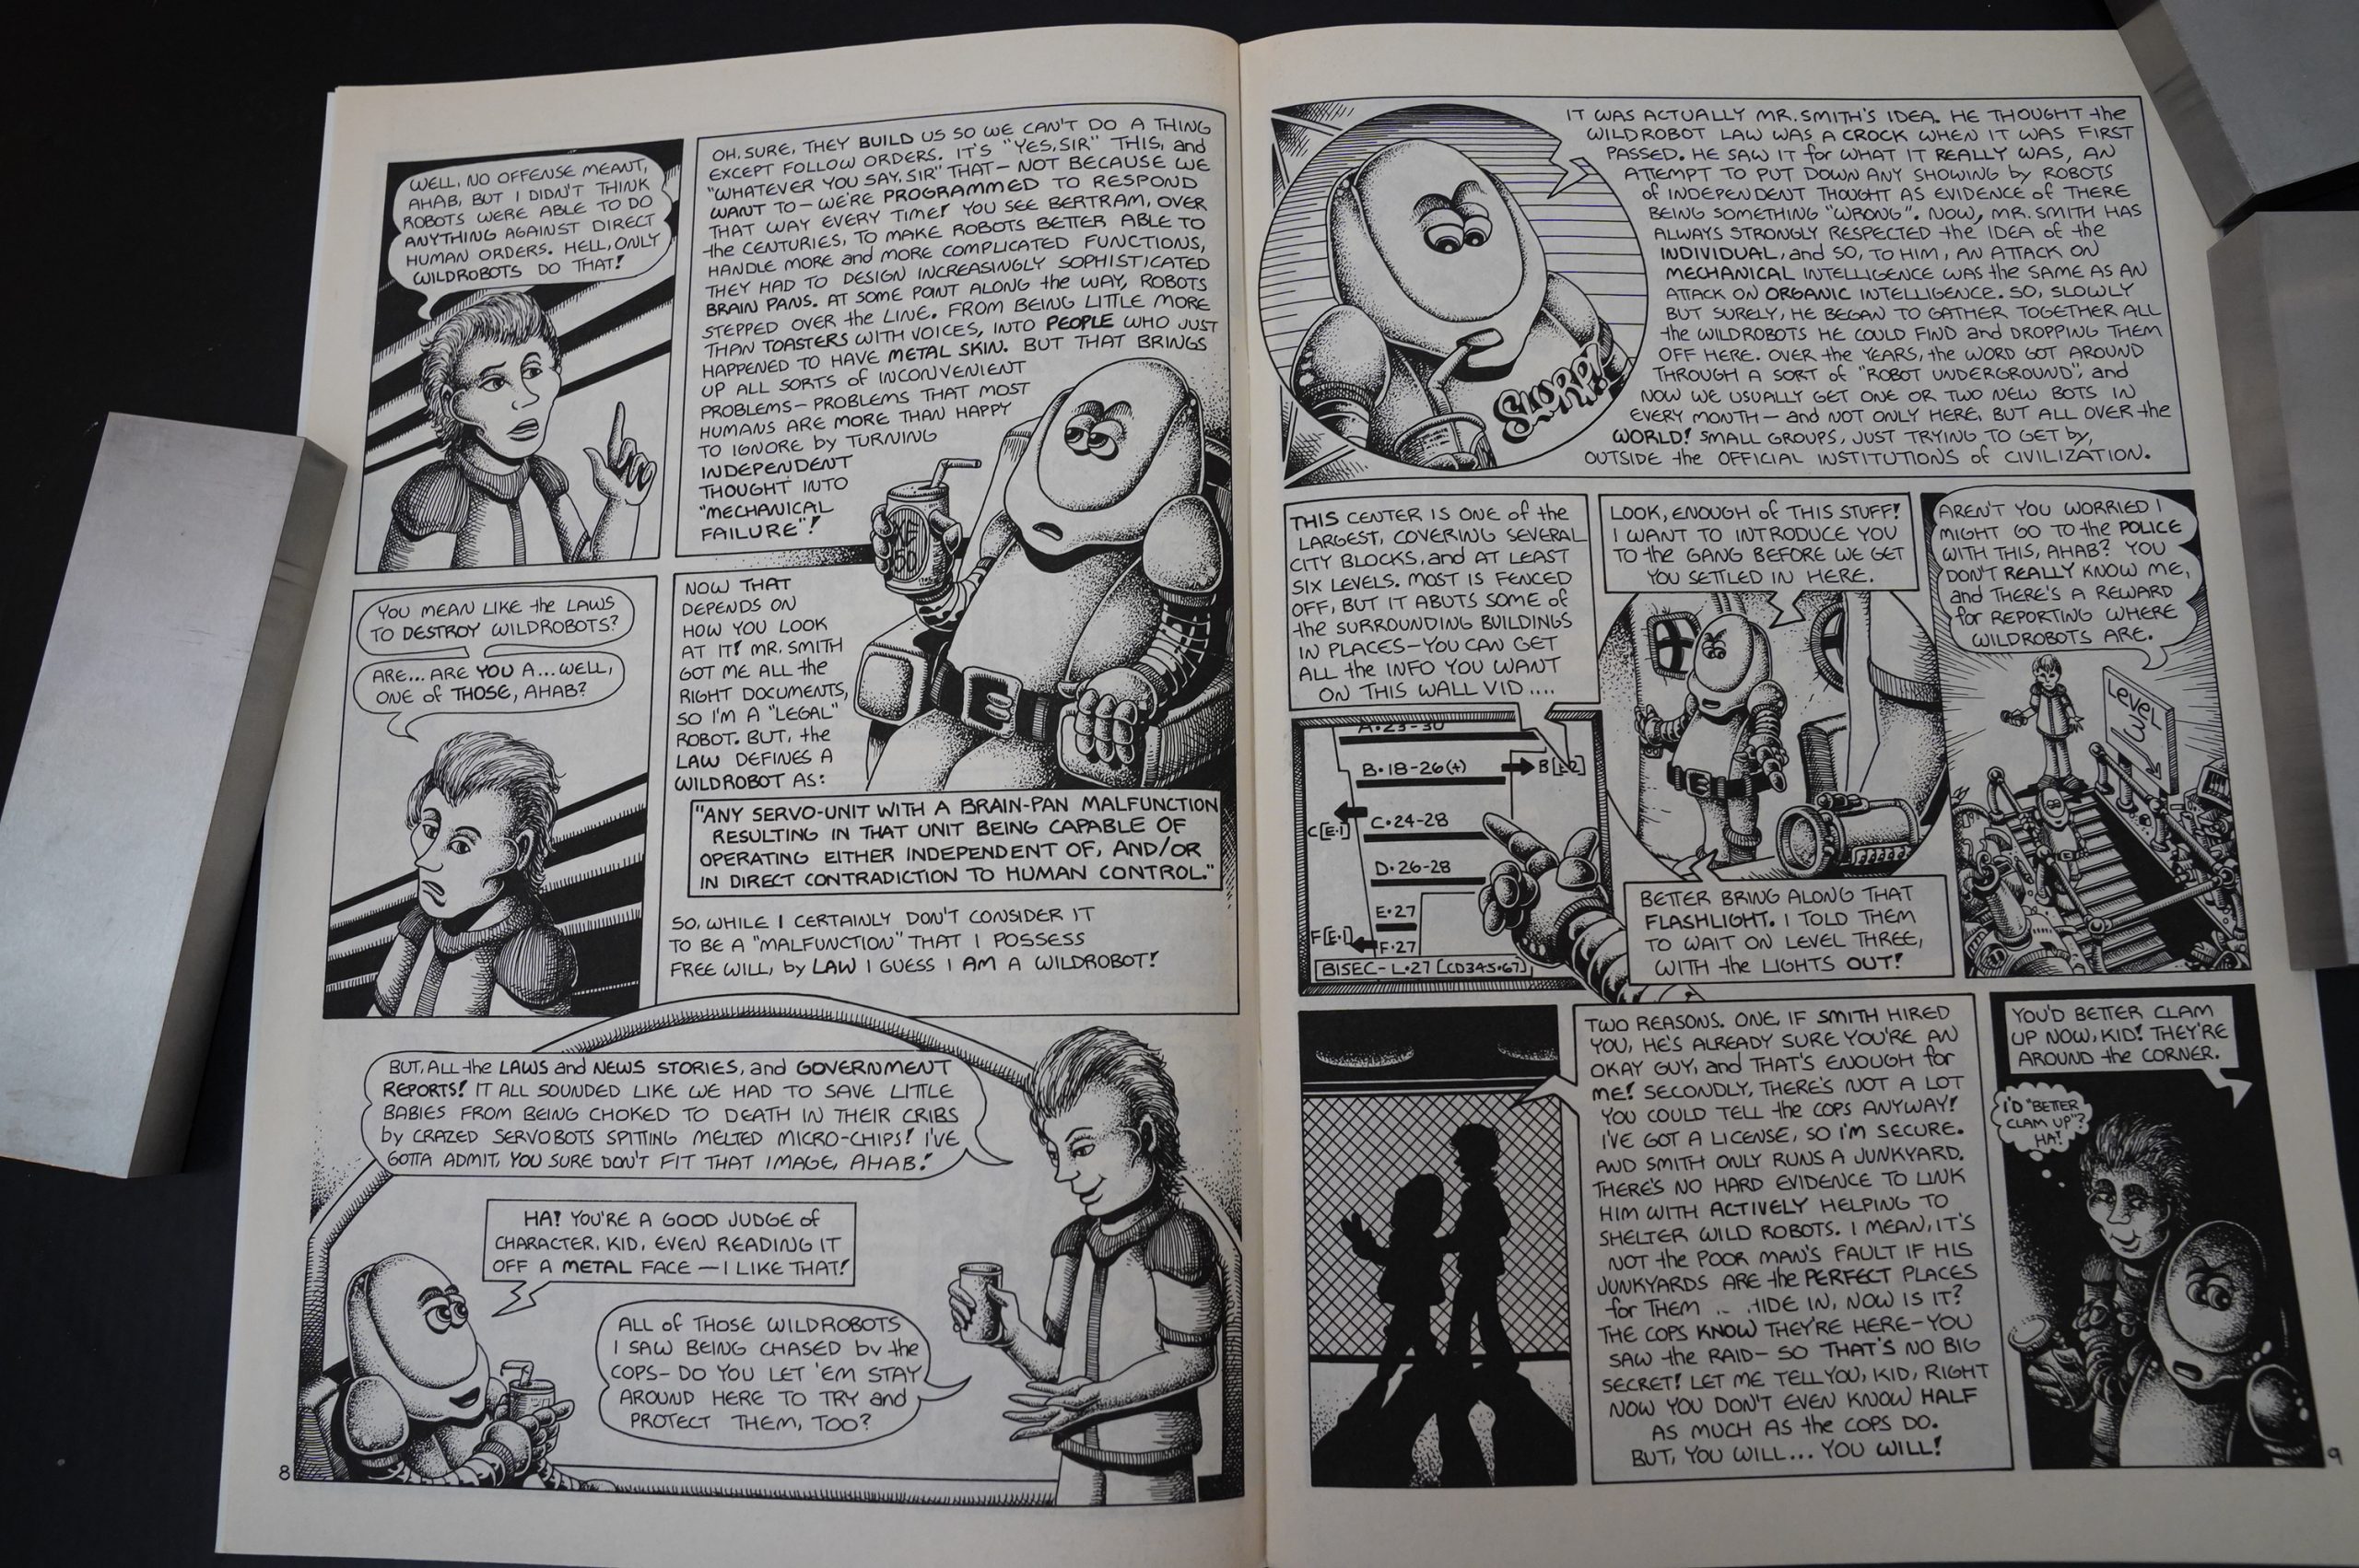 WELL, NO OFFENSE MEANT,
AHAB, BUT I DIDN'T THINK
ROBOTS WERE ABLE TO DO
ANYTHING AGAINST DIRECT
HUMAN ORDERS. HELL, ONLY
WILDROBOTS DO THAT!
OH, SURE, THEY BUILD US SO WE CAN'T DO A THING
EXCEPT FOLLOW ORDERS. IT'S "YES, SIR" THIS, and
"WHATEVER YOU SAY, SIR" THAT— NOT BECAUSE WE
WANT TO— WE'RE PROGRAMMED TO RESPOND
THAT WAY EVERY TIME! YOU SEE BERTRAM, OVER
the CENTURIES, TO MAKE ROBOTS BETTER ABLE TO
HANDLE MORE and MORE COMPLICATED FUNCTIONS,
THEY HAD TO DESIGN INCREASINGLY SOPHISTICATED
BRAIN PANS. AT SOME POINT ALONG the WAY, ROBOTS
STEPPED OVER the LINE. FROM BEING LITTLE MORE
THAN TOASTERS WITH VOICES, INTO PEOPLE WHO JUST
HAPPENED TO HAVE METAL SKIN. BUT THAT BRINGS
UP ALL SORTS of INCONVENIENT
PROBLEMS— PROBLEMS THAT MOST
HUMANS ARE MORE THAN HAPPY
TO IGNORE by TURNING
INDEPENDENT
THOUGHT INTO
"MECHANICAL
FAILURE"!
50
YOU MEAN LIKE the LAWS
TO DESTROY WILDROBOTS?
ARE... ARE YOU A... WELL,
ONE of THOSE, AHAB?
NOW THAT
DEPENDS ON
HOW YOU LOOK
AT IT! MR. SMITH
GOT ME ALL the
RIGHT DOCUMENTS,
SO I'M A "LEGAL"
ROBOT. BUT, the
LAW DEFINES A
WILDROBOT AS:
"ANY SERVO-UNIT WITH A BRAIN-PAN MALFUNCTION
RESULTING IN THAT UNIT BEING CAPABLE OF
OPERATING EITHER INDEPENDENT OF, AND/OR
IN DIRECT CONTRADICTION TO HUMAN CONTROL."
SO, WHILE I CERTAINLY DON'T CONSIDER IT
TO BE A "MALFUNCTION" THAT I POSSESS
FREE WILL, by LAW I GUESS I AM A WILDROBOT!
BUT, ALL the LAWS and NEWS STORIES, and GOVERNMENT
REPORTS! IT ALL SOUNDED LIKE WE HAD TO SAVE LITTLE
BABIES FROM BEING CHOKED TO DEATH IN THEIR CRIBS
by CRAZED SERVOBOTS SPITTING MELTED MICRO-CHIPS! I'VE
GOTTA ADMIT, YOU SURE DON'T FIT THAT IMAGE, AHAB!
HA! YOU'RE A GOOD JUDGE of
CHARACTER, KID, EVEN READING IT
OFF A METAL FACE — I LIKE THAT!
ALL of THOSE WILDROBOTS
I SAW BEING CHASED by the
COPS— DO YOU LET 'EM STAY
AROUND HERE TO TRY and
PROTECT THEM, TOO?
8
IT WAS ACTUALLY MR. SMITH'S IDEA. HE THOUGHT the
WILDROBOT LAW WAS A CROCK WHEN IT WAS FIRST
PASSED. HE SAW IT for WHAT IT REALLY WAS, AN
ATTEMPT TO PUT DOWN ANY SHOWING by ROBOTS
of INDEPENDENT THOUGHT AS EVIDENCE of THERE
BEING SOMETHING "WRONG". NOW, MR. SMITH HAS
ALWAYS STRONGLY RESPECTED the IDEA of the
INDIVIDUAL, and SO, TO HIM, AN ATTACK ON
MECHANICAL INTELLIGENCE WAS the SAME AS AN
ATTACK ON ORGANIC INTELLIGENCE. SO, SLOWLY
BUT SURELY, HE BEGAN TO GATHER TOGETHER ALL
the WILDROBOTS HE COULD FIND and DROPPING THEM
OFF HERE. OVER the YEARS, the WORD GOT AROUND
THROUGH A SORT of "ROBOT UNDERGROUND", and
NOW WE USUALLY GET ONE OR TWO NEW BOTS IN
EVERY MONTH — and NOT ONLY HERE, BUT ALL OVER the
WORLD! SMALL GROUPS, JUST TRYING TO GET by,
OUTSIDE the OFFICIAL INSTITUTIONS of CIVILIZATION.
SLURP!
THIS CENTER IS ONE of the
LARGEST, COVERING SEVERAL
CITY BLOCKS, and AT LEAST
SIX LEVELS. MOST IS FENCED
OFF, BUT IT ABUTS SOME of
the SURROUNDING BUILDINGS
IN PLACES—YOU CAN GET
ALL the INFO YOU WANT
ON THIS WALL VID....
A•23-30
B•18-26(+)
C[E•1]
C•24-28
D•26-28
E•27
F[E•1]
F•27
BISEC-L•27 [CD345•67]
LOOK, ENOUGH of THIS STUFF!
I WANT TO INTRODUCE YOU
TO the GANG BEFORE WE GET
YOU SETTLED IN HERE.
BETTER BRING ALONG THAT
FLASHLIGHT. I TOLD THEM
TO WAIT ON LEVEL THREE,
WITH the LIGHTS OUT!
AREN'T YOU WORRIED I
MIGHT GO TO the POLICE
WITH THIS, AHAB? YOU
DON'T REALLY KNOW ME,
and THERE'S A REWARD
for REPORTING WHERE
WILDROBOTS ARE.
LEVEL
3
TWO REASONS. ONE, IF SMITH HIRED
YOU, HE'S ALREADY SURE YOU'RE AN
OKAY GUY, and THAT'S ENOUGH for
ME! SECONDLY, THERE'S NOT A LOT
YOU COULD TELL the COPS ANYWAY!
I'VE GOT A LICENSE, SO I'M SECURE.
AND SMITH ONLY RUNS A JUNKYARD.
THERE'S NO HARD EVIDENCE TO LINK
HIM WITH ACTIVELY HELPING TO
SHELTER WILD ROBOTS. I MEAN, IT'S
NOT the POOR MAN'S FAULT IF HIS
JUNKYARDS ARE the PERFECT PLACES
for THEM HIDE IN, NOW IS IT?
THE COPS KNOW THEY'RE HERE—YOU
SAW the RAID— SO THAT'S NO BIG
SECRET! LET ME TELL YOU, KID, RIGHT
NOW YOU DON'T EVEN KNOW HALF
AS MUCH AS the COPS DO.
BUT, YOU WILL... YOU WILL!
YOU'D BETTER CLAM
UP NOW, KID! THEY'RE
AROUND the CORNER.
I'D "BETTER
CLAM UP"?
HA!
9